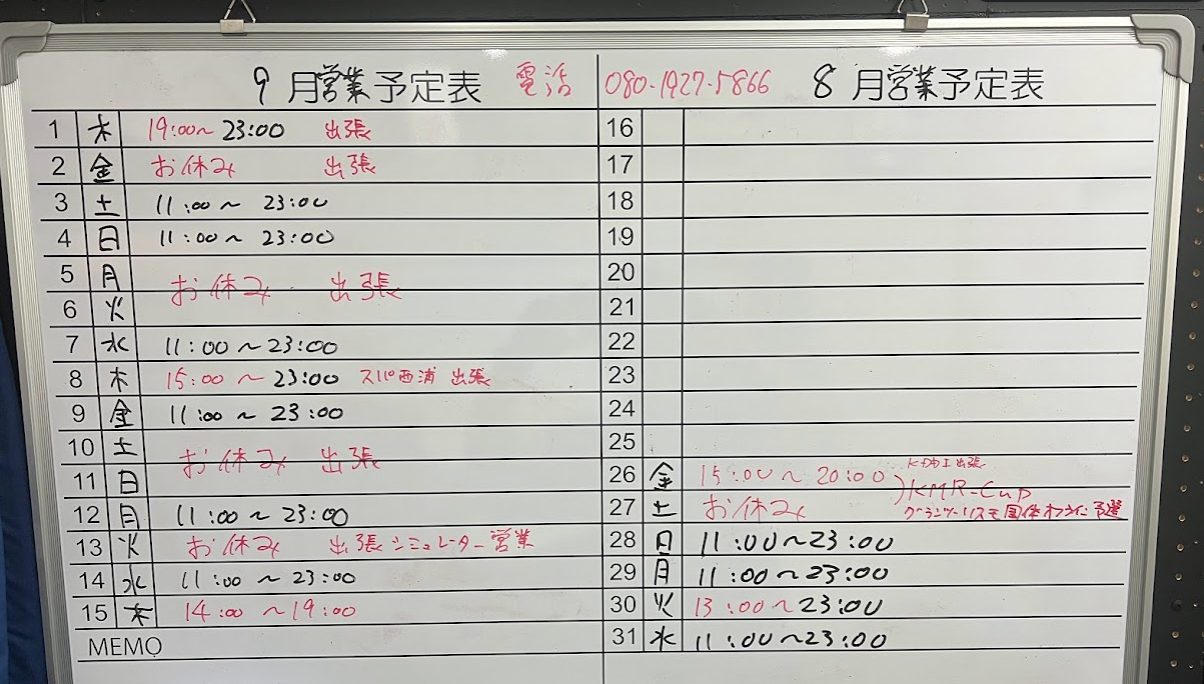 9 月営業予定表 電話 080-1927-5866
1 木 19:00〜23:00 出張
2 金 お休み 出張
3 土 11:00〜23:00
4 日 11:00〜23:00
5 月 お休み 出張
6 火
7 水 11:00〜23:00
8 木 15:00〜23:00 スパ西浦 出張
9 金 11:00〜23:00
10 土 お休み 出張
11 日
12 月 11:00〜23:00
13 火 お休み 出張シミュレーター営業
14 水 11:00〜23:00
15 木 14:00〜19:00
MEMO
8 月営業予定表
16
17
18
19
20
21
22
23
24
25
26 金 15:00〜20:00 KDDI出張
KMR-Cup
27 土 お休み グランツーリスモ国体オフライン予選
28 日 11:00〜23:00
29 月 11:00〜23:00
30 火 13:00〜23:00
31 水 11:00〜23:00